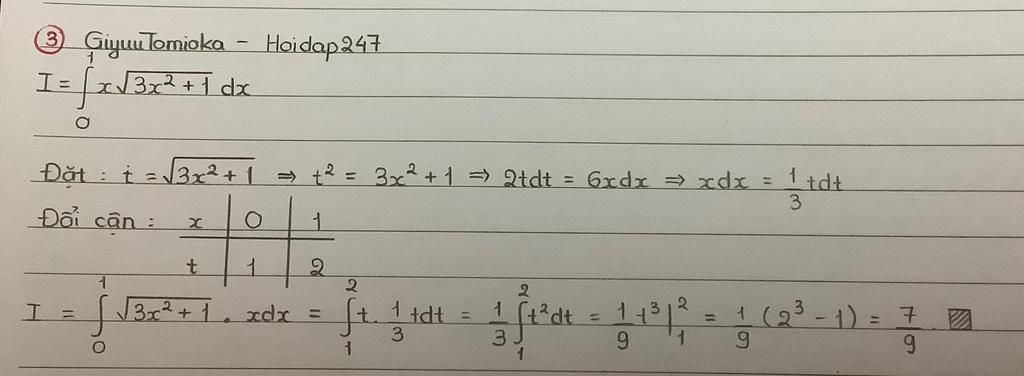 ③ GiyuuTomioka - Hoidap247
I = ∫₀¹ x√(3x² + 1) dx
Đặt : t = √(3x² + 1) ⇒ t² = 3x² + 1 ⇒ 2tdt = 6xdx ⇒ xdx = 1/3 tdt
Đổi cận : x | 0 | 1
t | 1 | 2
I = ∫₀¹ √(3x² + 1) . xdx = ∫₁² t. 1/3 tdt = 1/3 ∫₁² t²dt = 1/9 t³|₁² = 1/9 (2³ - 1) = 7/9 . ▨